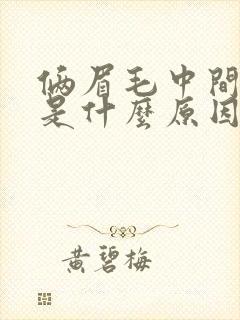 俩眉毛中間
是什麼原因
黄碧梅